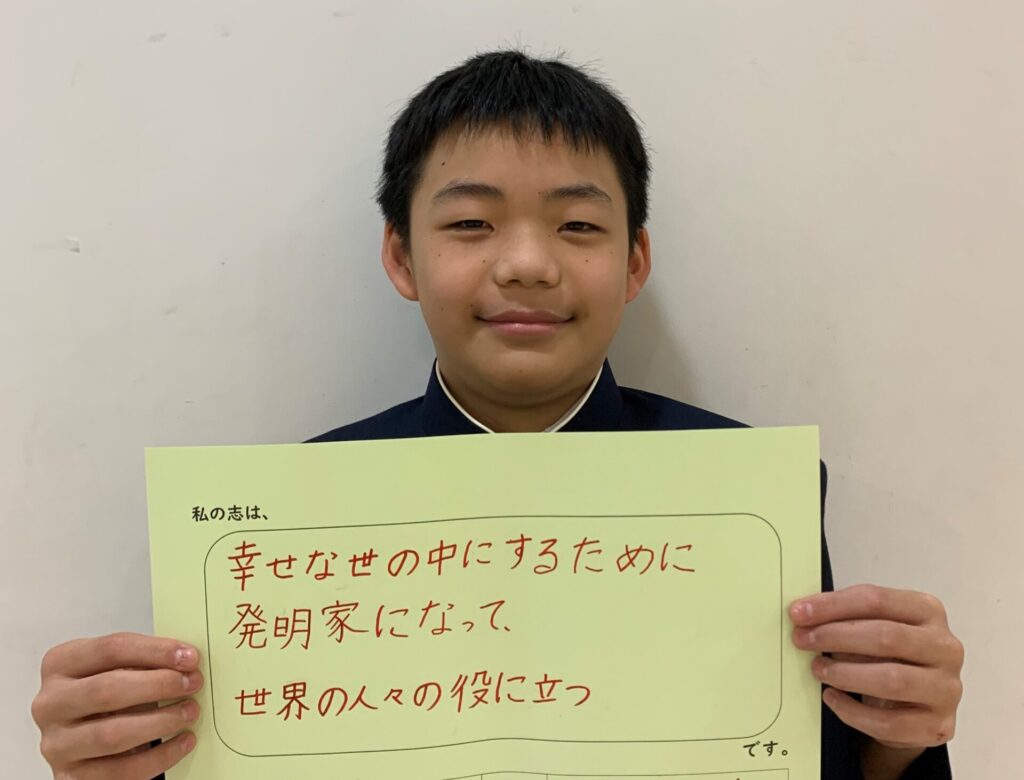 私の志は、
幸せな世の中にするために
発明家になって、
世界の人々の役に立つ
です。